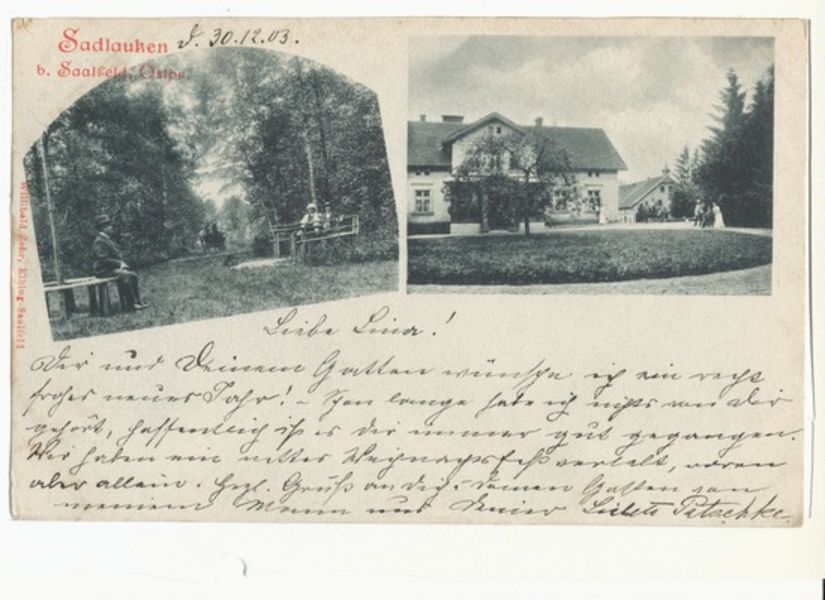 Sadlauken d. 30.12.03.
b. Saalfeld, Ostpr.
Willibald Zehr, Elbing-Saalfeld
Liebe Lina!
Dir und Deinem Gatten wünsche ich ein recht
frohes neues Jahr! - Schon lange habe ich nichts von Dir
gehört, hoffentlich ist es dir immer gut gegangen.
Wir haben ein nettes Weihnachtsfest verlebt, waren
aber allein. Herzl. Gruß an dich u. deinen Gatten von
meinem Mann und Deiner Petschke